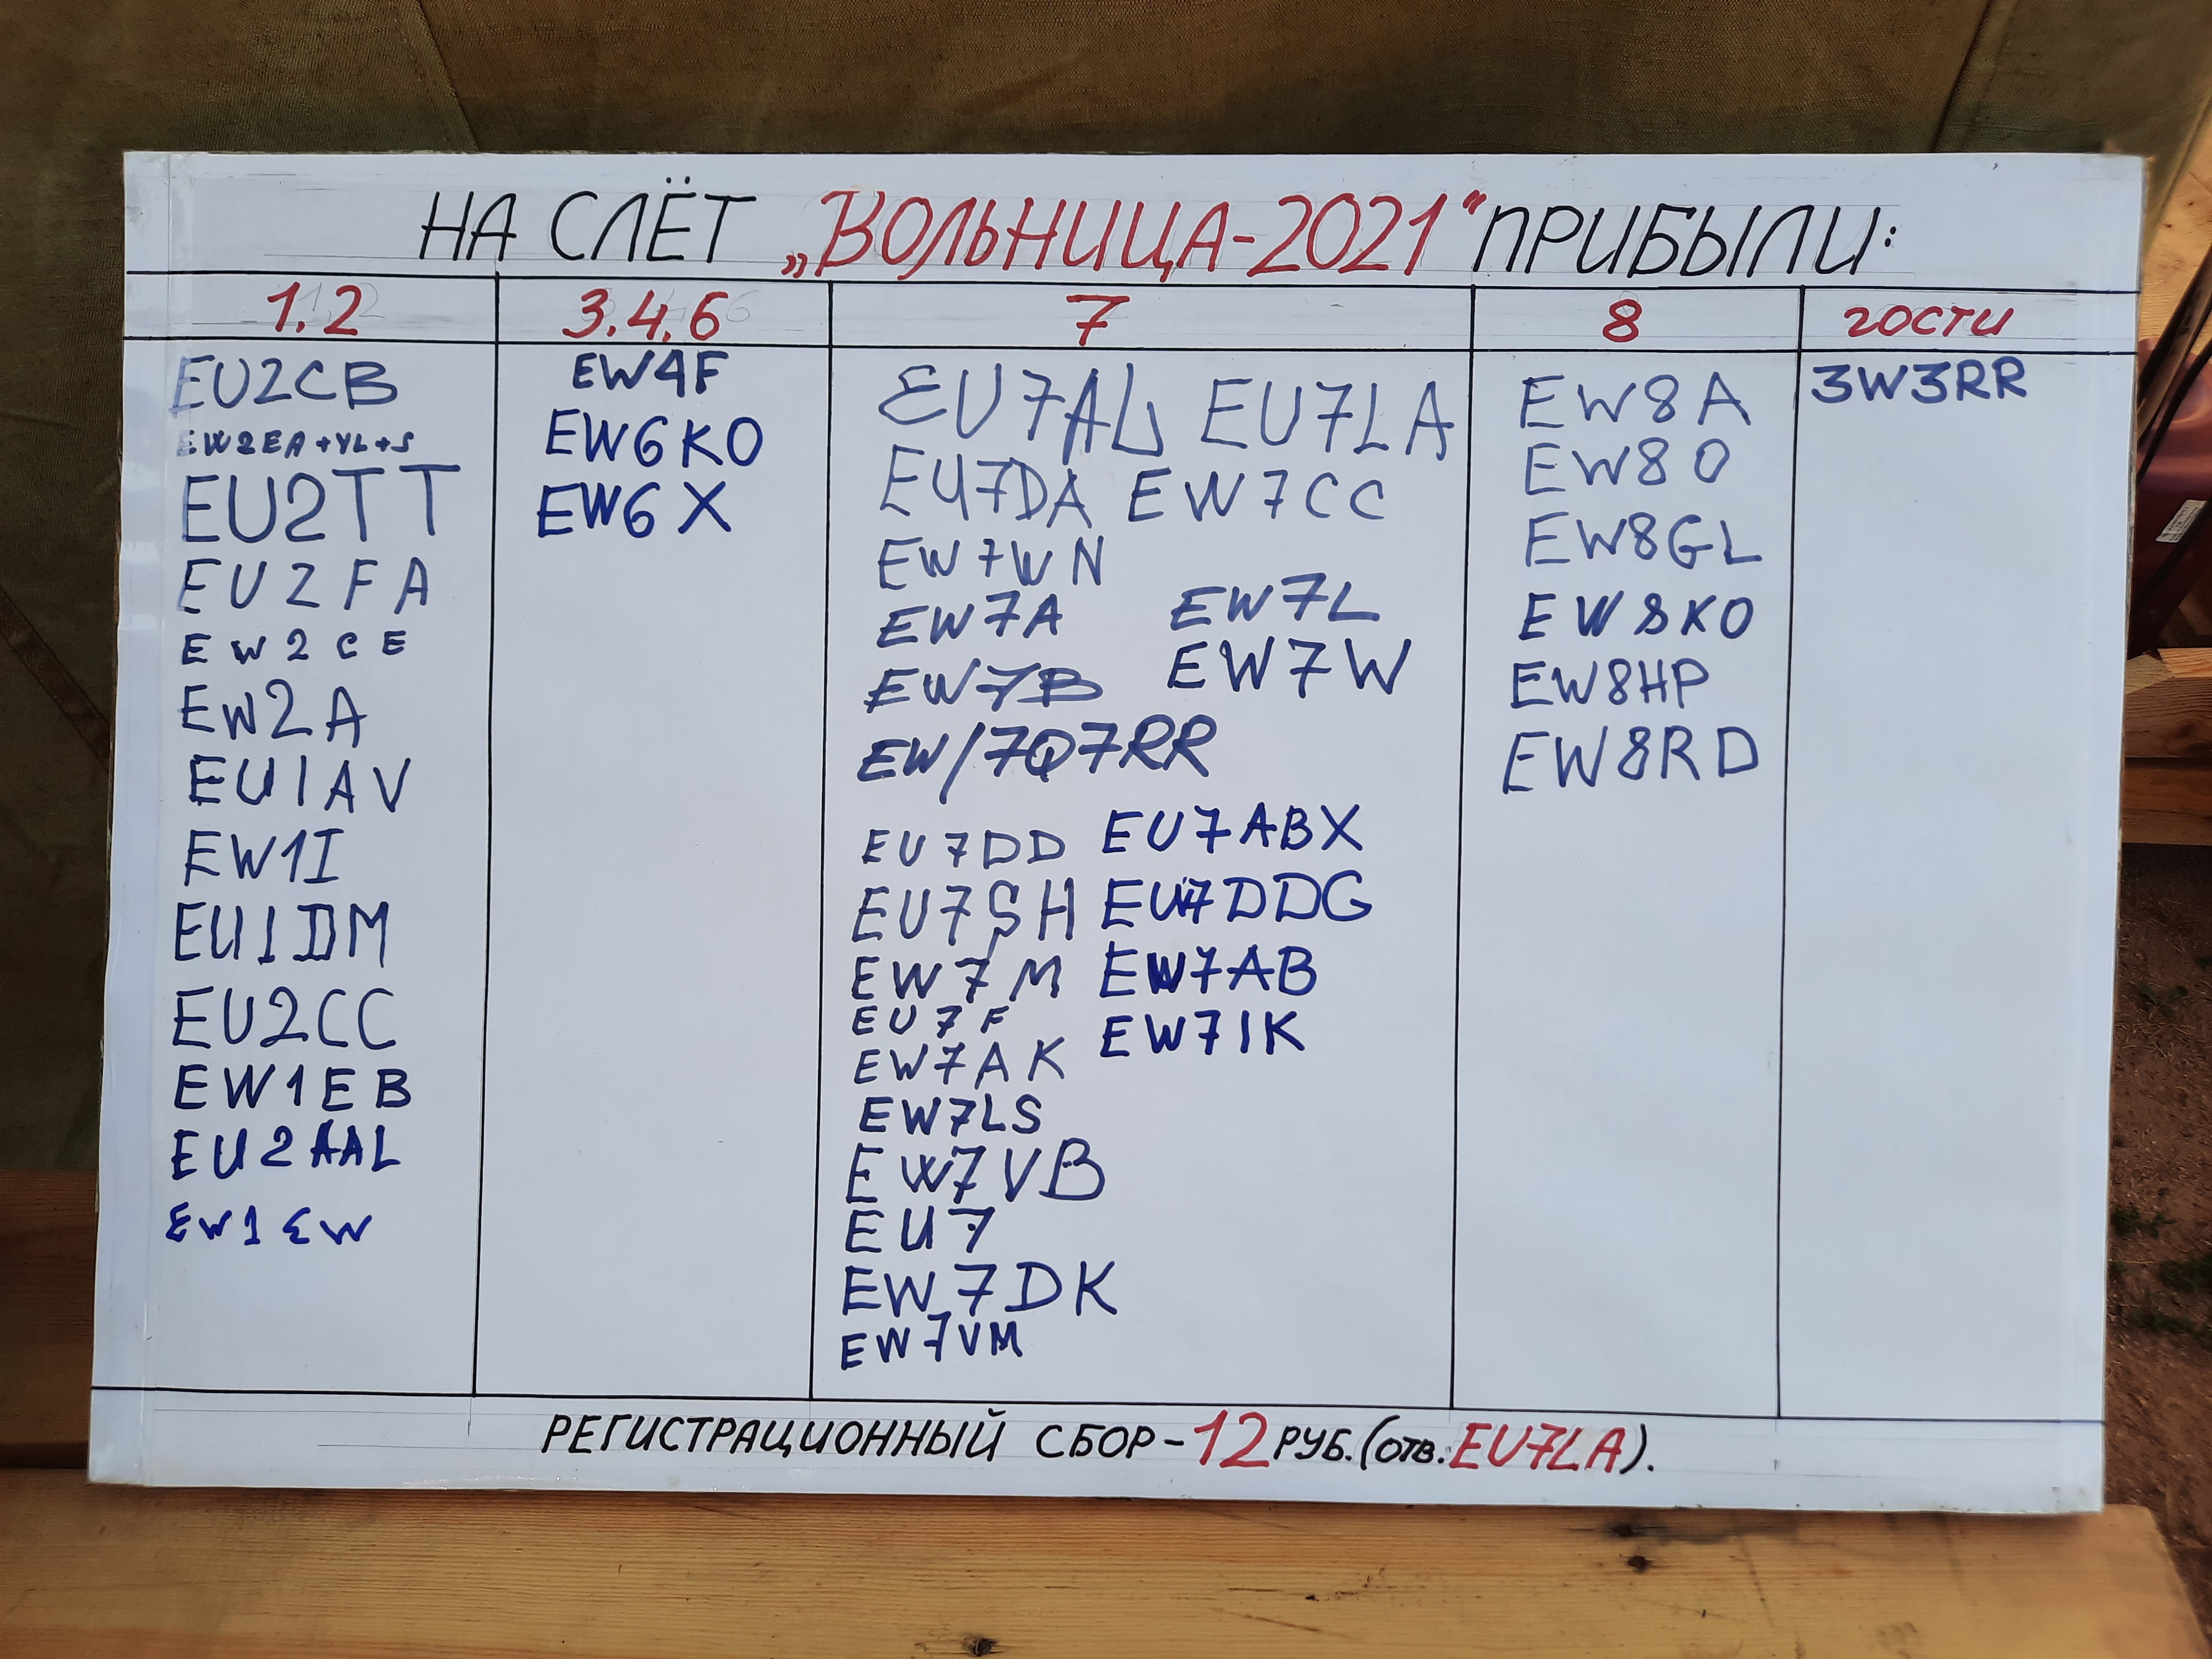 НА СЛЁТ „ВОЛЬНИЦА-2021" ПРИБЫЛИ:
1.2
EU2CB
EW2EA+YL+S
EU2TT
EU2FA
EW2CE
EW2A
EU1AV
EW1I
EU1DM
EU2CC
EW1EB
EU2AAL
EW1EW
3.4.6
EW4F
EW6KO
EW6X
7
EU7AL EU7LA
EU7DA EW7CC
EW7WN
EW7A EW7L
EW7B EW7W
EW/7Q7RR
EU7DD EU7ABX
EU7SH EU7DDG
EW7M EW7AB
EU7F EW7IK
EW7AK
EW7LS
EW7VB
EU7
EW7DK
EW7VM
8
EW8A
EW8O
EW8GL
EW8KO
EW8HP
EW8RD
гости
3W3RR
РЕГИСТРАЦИОННЫЙ СБОР-12 РУБ.(отв.:EU7LA).